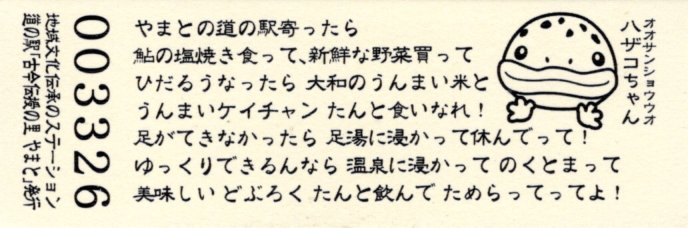 やまとの道の駅寄ったら
鮎の塩焼き食って、新鮮な野菜買って
ひだるうなったら 大和のうんまい米と
うんまいケイチャン たんと食いなれ!
足がてきなかったら 足湯に浸かって休んでって!
ゆっくりできるんなら 温泉に浸かって のくとまって
美味しい どぶろく たんと飲んで ためらってってよ!
オオサンショウウオ
ハザコちゃん
003326
地域文化伝承のステーション
道の駅「古今伝授の里 やまと」発行